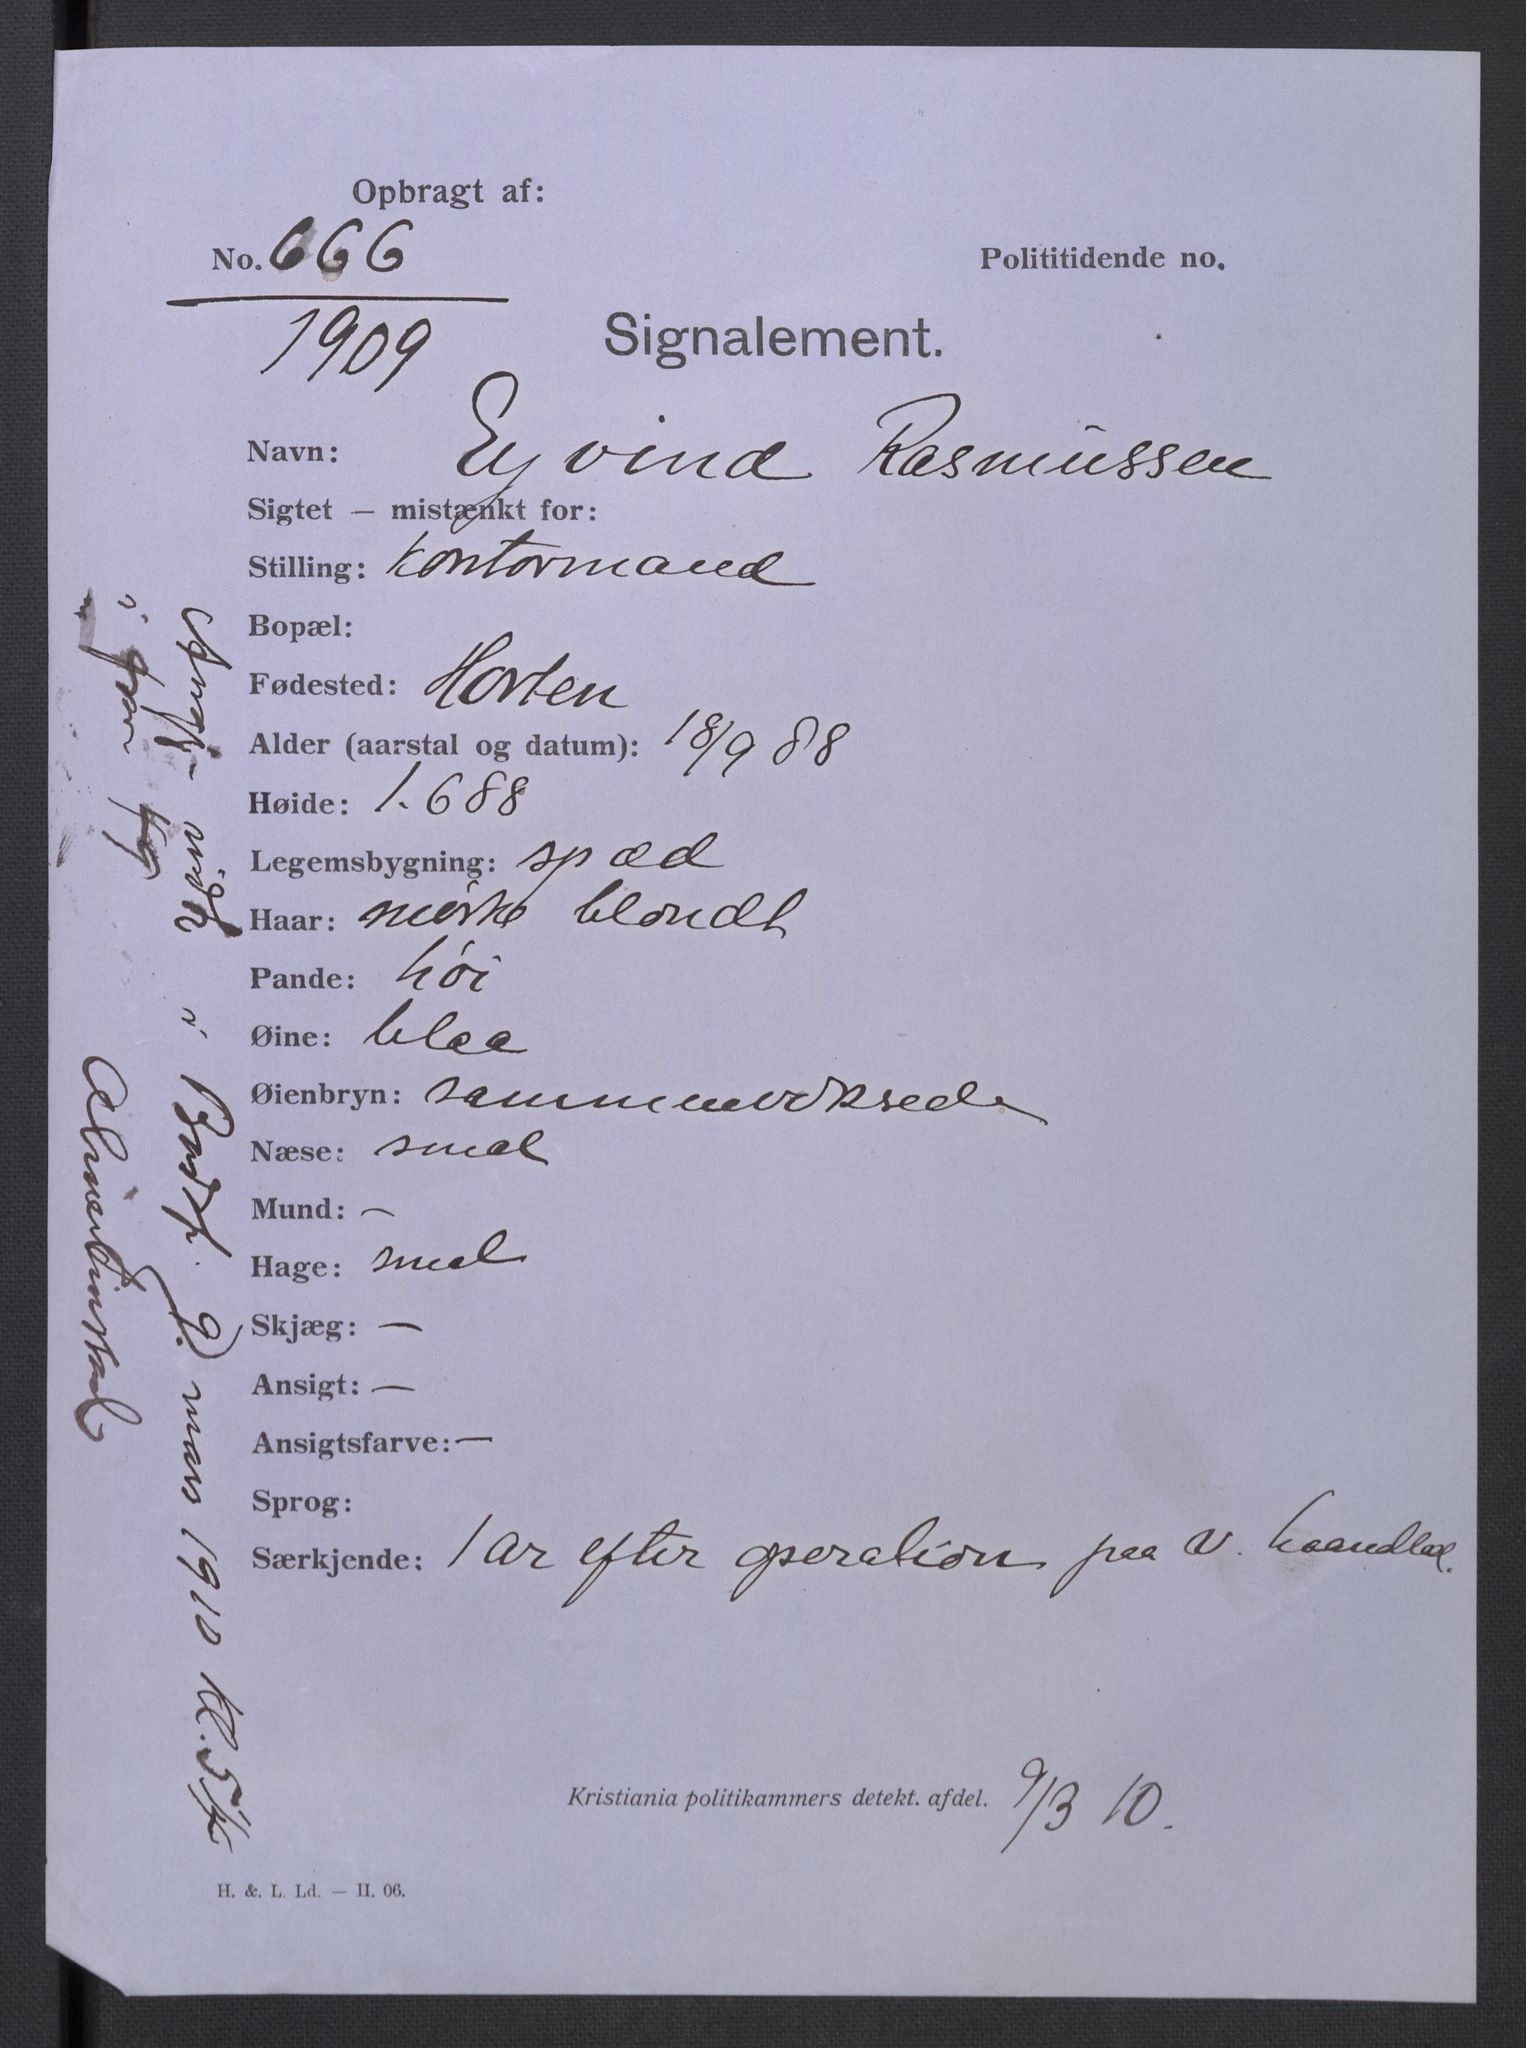 Opbragt af:
No. 666
1909
Polititidende no.
Signalement.
Navn: Eyvind Rasmussen
Sigtet — mistænkt for:
Stilling: kontormand
Bopæl:
Fødested: Horten
Alder (aarstal og datum): 18/9 88
Høide: 1.688
Legemsbygning: spæd
Haar: mørke blondt
Pande: høi
Øine: blaa
Øienbryn: sammenvoksede
Næse: smal
Mund: —
Hage: smal
Skjæg: —
Ansigt: —
Ansigtsfarve: —
Sprog:
Særkjende: 1 ar efter operation paa v. haandled.
Kristiania politikammers detekt. afdel. 9/3 10.
H. & L. Ld. — II. 06.
i 9. mars 1910 kl. 5
i